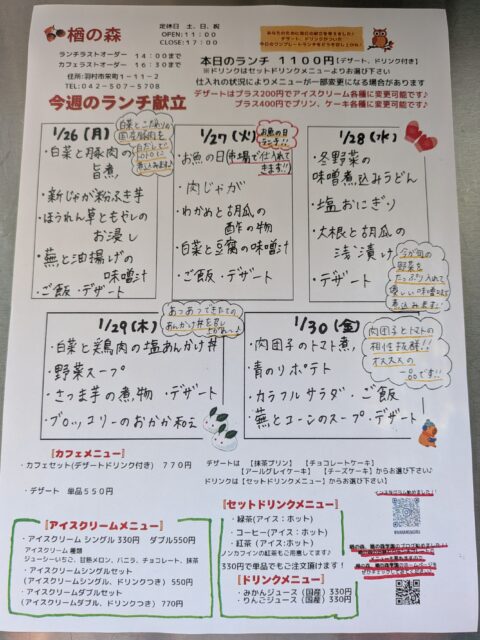 楢の森
定休日 土、日、祝
OPEN:11:00
CLOSE:17:00
ランチラストオーダー 14:00まで
カフェラストオーダー 16:30まで
住所:羽村市栄町1-11-2
TEL:042-507-5708
本日のランチ 1100円【デザート、ドリンク付き】
※ドリンクはセットドリンクメニューよりお選び下さい
仕入れの状況によりメニューが一部変更になる場合があります
デザートはプラス200円でアイスクリーム各種に変更可能です♪
プラス400円でプリン、ケーキ各種に変更可能です♪
今週のランチ献立
1/26(月)
・白菜と豚肉の
旨煮
・新じゃが粉ふき芋
・ほうれん草ともやしの
お浸し
・蕪と油揚げの
味噌汁
・ご飯・デザート
1/27(火)
お魚の日
・お魚の日(市場で仕入れて
きます!!)
・肉じゃが
・わかめと胡瓜の
酢の物
・白菜と豆腐の味噌汁
・ご飯・デザート
1/28(水)
・冬野菜の
味噌煮込みうどん
・塩おにぎり
・大根と胡瓜の
浅漬け
・デザート
今が旬の
野菜を
たっぷり入れて
優しい味噌味で
煮込みます!
1/29(木)
あつあつできたての
あんかけ丼を召し
上がれっ♪
・白菜と鶏肉の塩あんかけ丼
・野菜スープ
・さつま芋の煮物 ・デザート
・ブロッコリーのおかか和え
1/30(金)
・肉団子のトマト煮
・青のりポテト
・カラフルサラダ・ご飯
・蕪とコーンのスープ・デザート
肉団子とトマトの
相性抜群!!
オススメの
一品です!!
『カフェメニュー』
・カフェセット(デザートドリンク付き) 770円
・デザート 単品550円
デザートは 【抹茶プリン】 【チョコレートケーキ】
【アールグレイケーキ】 【チーズケーキ】からお選び下さい♪
ドリンクは【セットドリンクメニュー】からお選び下さい♪
『アイスクリームメニュー』
・アイスクリーム シングル330円 ダブル550円
アイスクリーム 種類
ジューシーいちご、甘熟メロン、バニラ、チョコレート、抹茶
・アイスクリームシングルセット
(アイスクリームシングル、ドリンクつき) 550円
・アイスクリームダブルセット
(アイスクリームダブル、ドリンクつき) 770円
『セットドリンクメニュー』
・緑茶(アイス:ホット)
・コーヒー(アイス:ホット)
・紅茶(アイス:ホット)
ノンカフェインの紅茶もご用意してます♪
330円で単品でもご注文頂けます!
『ドリンクメニュー』
・みかんジュース(国産)330円
・りんごジュース(国産)330円
インスタグラム始めました!